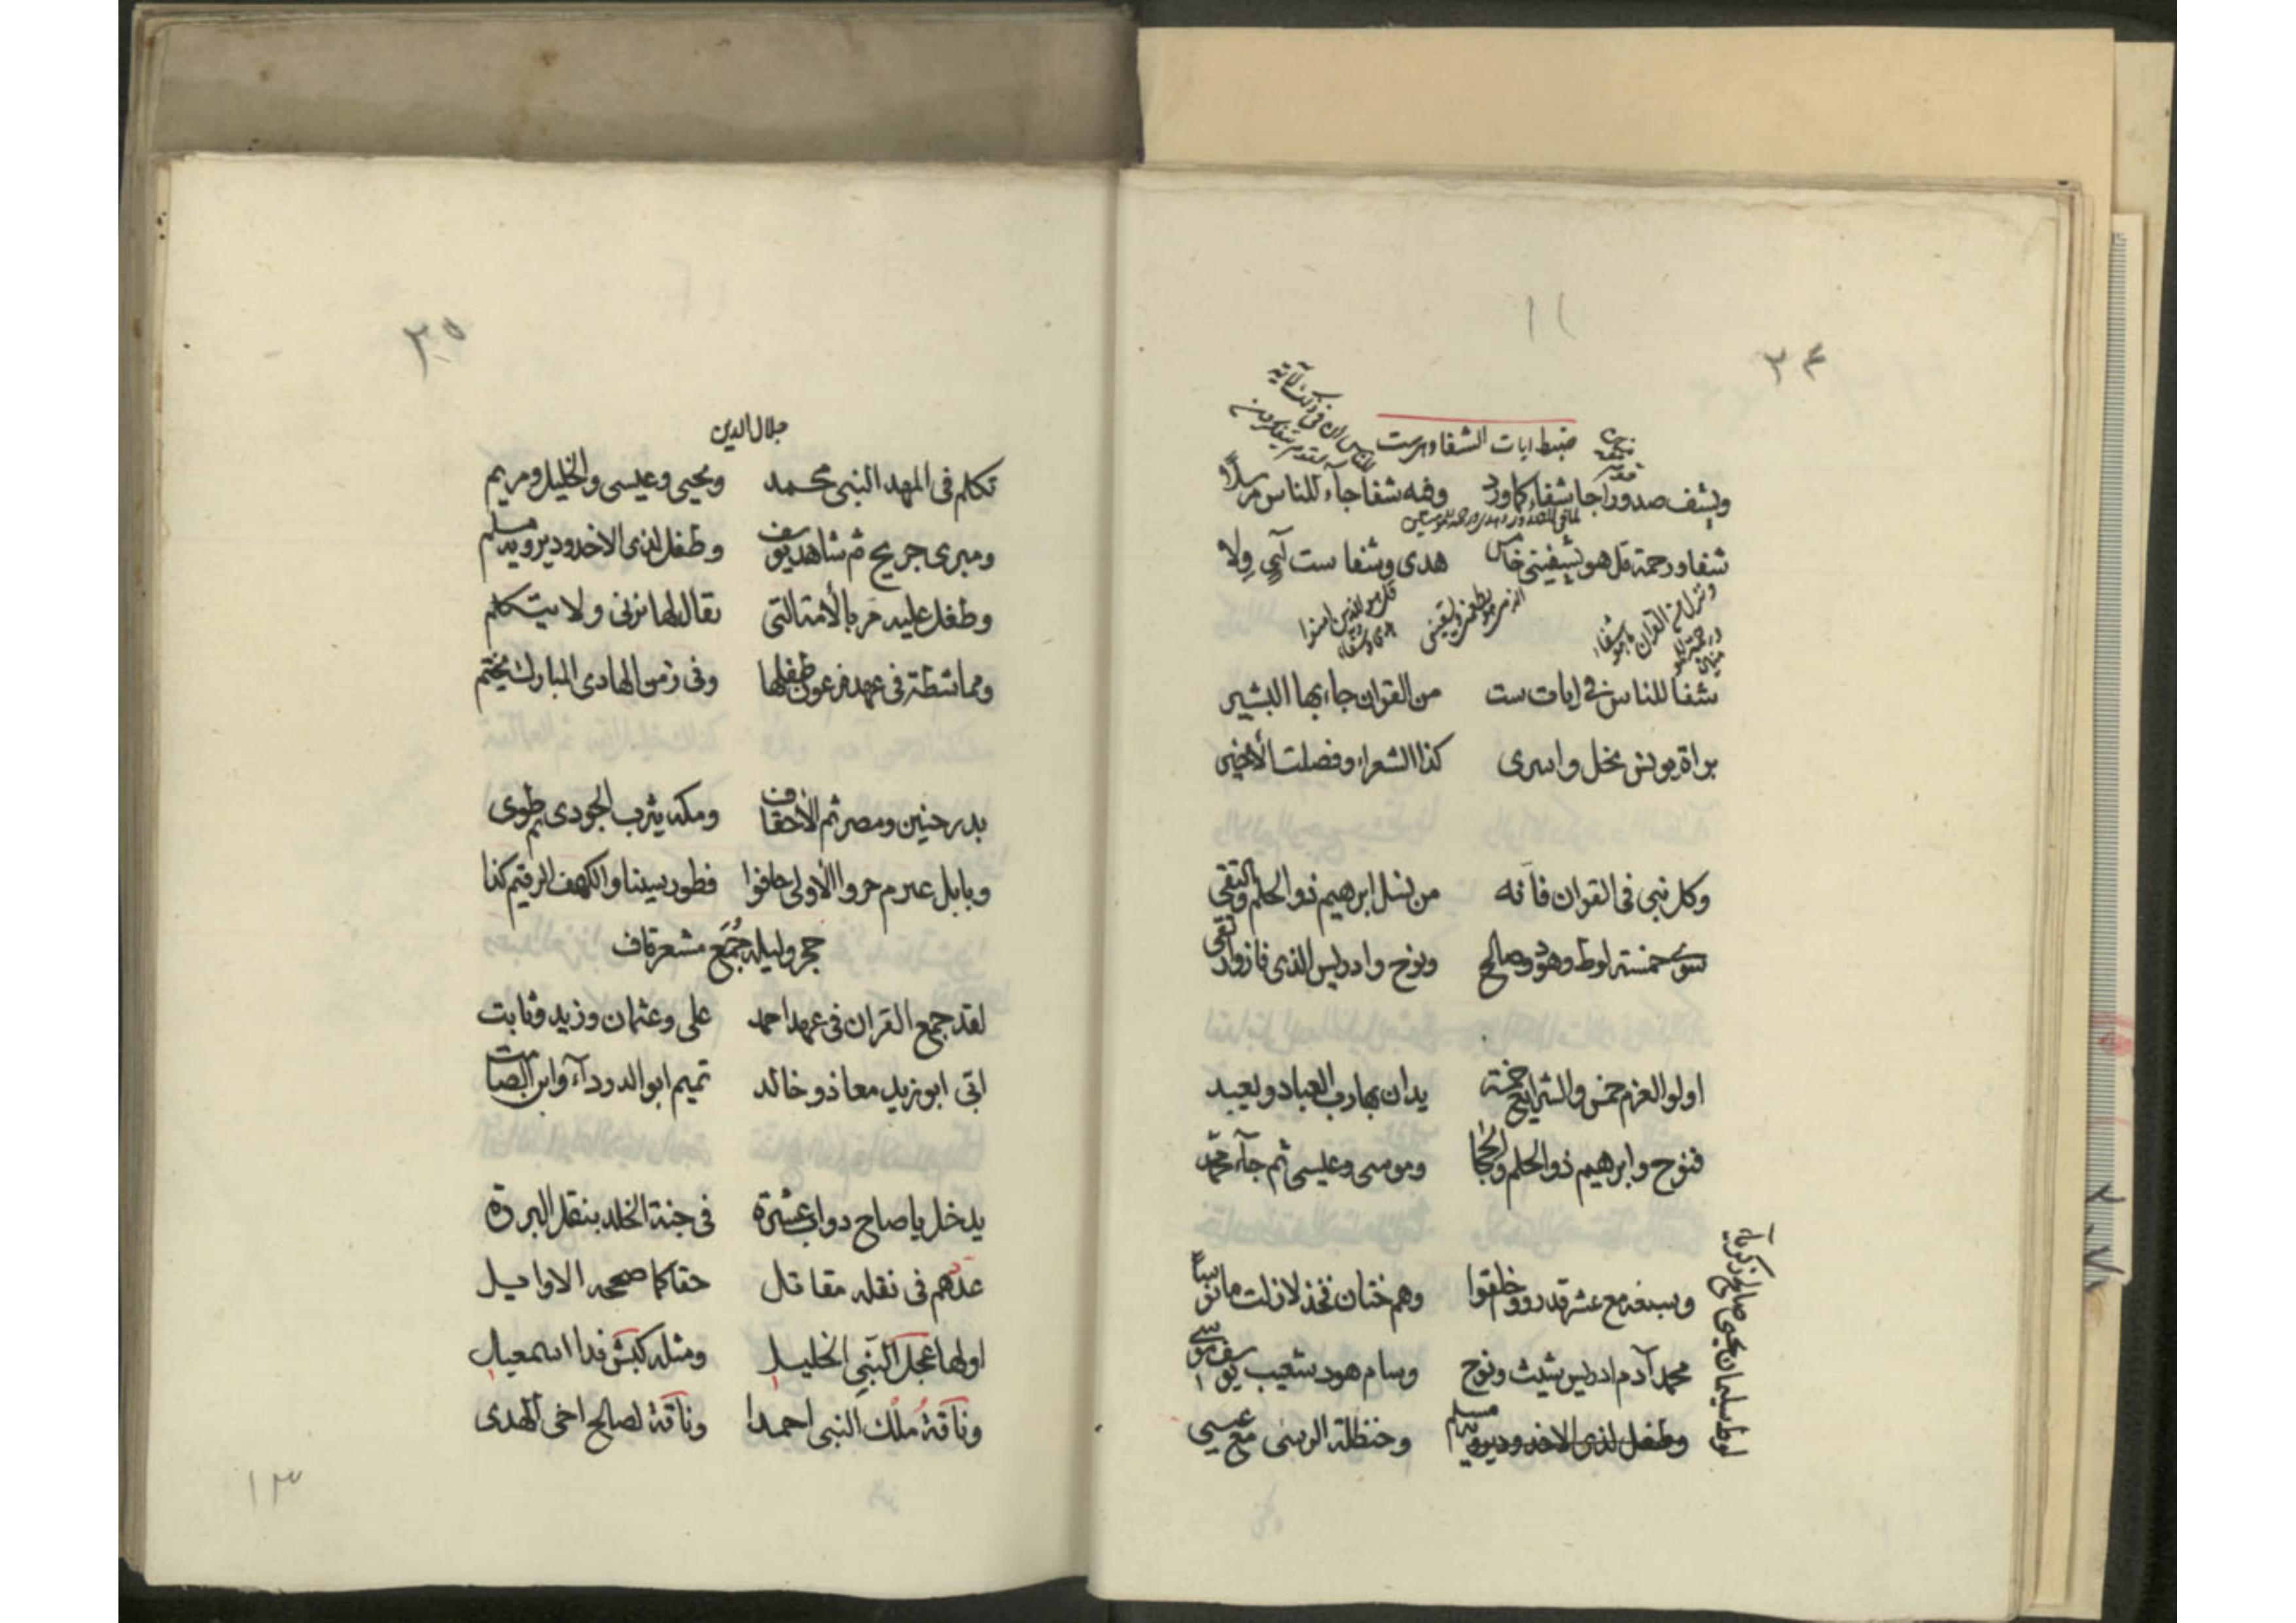 ٢٤
ضبط ايات الشفا وهي ست
ويشف صدورا جا شفاء كما ورد وفيه شفا جاء للناس مرسلا
لما في الصدور وهدى ورحمة للمؤمنين
شفا ورحمة قل هو يشفيني خامس هدى وشفا ست آي ولا
وننزل من القرآن ما هو شفاء ورحمة للمؤمنين
قل هو للذين امنوا هدى وشفاء
شفا للناس في ايات ست من القران جاء بها البشير
براة يونس نحل واسرى كذا الشعراء وفصلت الأخير
وكل نبي في القران فانه من نسل ابرهيم ذو الحلم والتقى
سوى خمسة لوط وهود وصالح ونوح وادريس الذي فاز وارتقى
اولوا العزم خمس والشرايع خمسة يدان بها رب العباد ويعبد
فنوح وابرهيم ذو الحلم والحجا وموسى وعيسى ثم جآء محمد
وسبعة مع عشر قد رووا خلقوا وهم ختان فخذ لا زلت مانوسا
محمد آدم ادريس شيث ونوح وسام هود شعيب يوسف موسى
لوط سليمان يحيى صالح زكريا
وطفل لذى الاخدود يرويه مسلم وحنظلة الرسى مع عيسى
٢٥
جلال الدين
تكلم في المهد النبي محمد ويحيى وعيسى والخليل ومريم
ومبرى جريج ثم شاهد يوسف وطفل لذى الاخدود يرويه مسلم
وطفل عليه مر بالأمة التي يقال لها تزني ولا تتكلم
وماشطة في عهد فرعون طفلها وفي زمن الهادى المبارك يختم
بدر حنين ومصر ثم الأحقاف ومكة يثرب الجودى ثم طوى
وبابل عرم حرو الألاولى حافوا فطور سينا والكهف الرقيم كذا
حجر وليله جمع مشعر قاف
لقد جمع القران في عهد احمد على وعثمان وزيد وثابت
ابي ابو زيد معاذ وخالد تميم ابو الدردآء وابن الصامت
يدخل يا صاح دواب عشرة في جنة الخلد بنقل البررة
عدهم في نقله مقاتل حقا كما صححه الاوايل
اولها عجل النبي الخليل ومثله كبش فدا اسمعيل
وناقة ملك النبي احمدا وناقة لصالح اخى الهدى
١٣